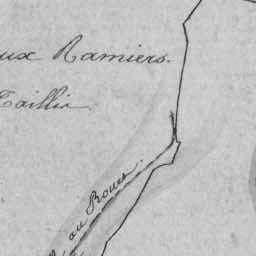 ux Ramiers.
Taillis
au Roues